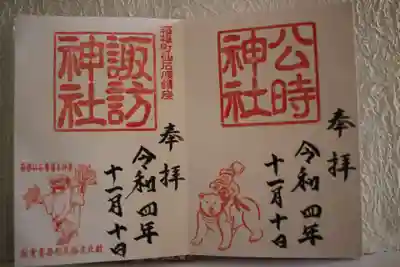 公時
神社
奉拝
令和四年
十一月十日
諏訪
神社
奉拝
令和四年
十一月十日